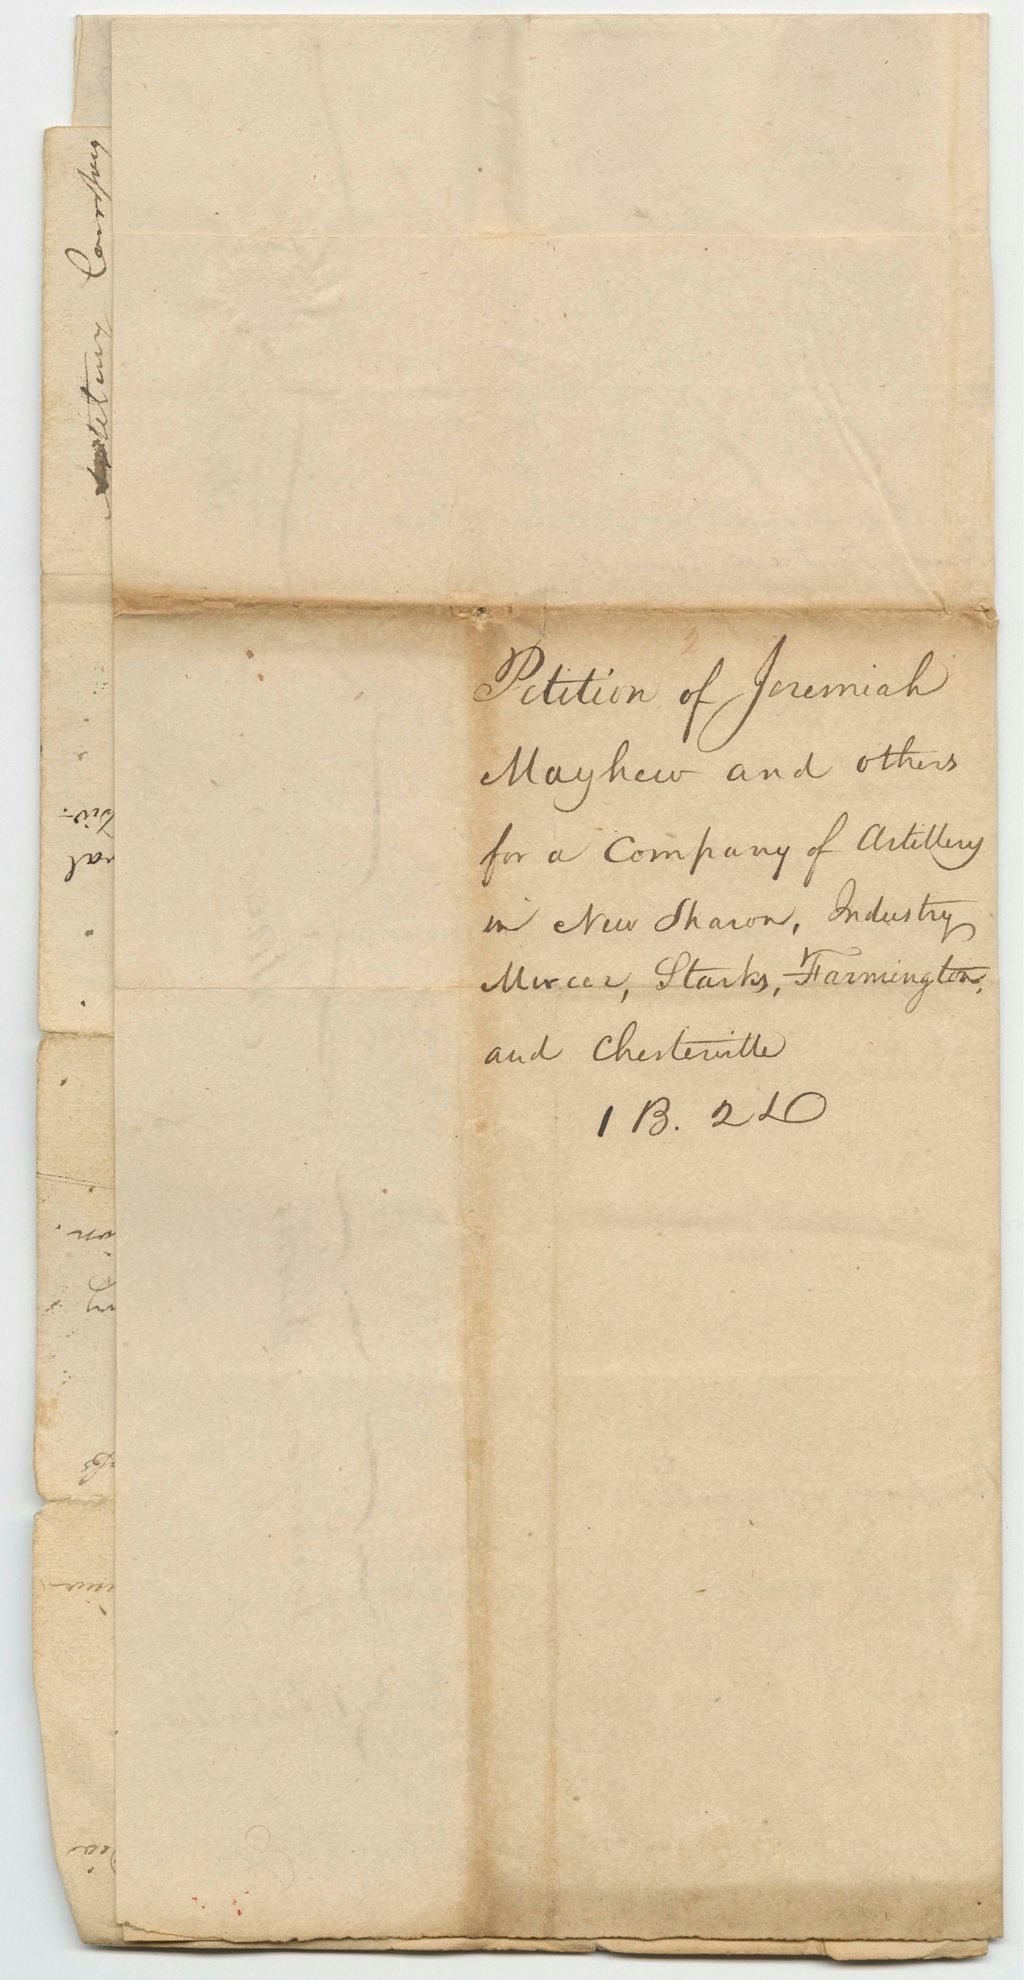 Petition of Jeremiah
Mayhew and others
for a Company of Artillery
in New Sharon, Industry
Mercer, Starks, Farmington,
and Chesterville
1 B. 2 D
Company
ral